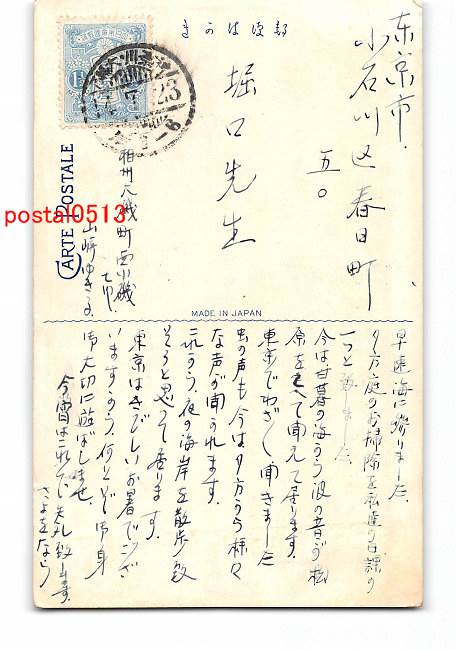 東京市
小石川区春日町
五〇
堀口先生
相州大磯町西小磯
山崎ゆきゑ
CARTE POSTALE
MADE IN JAPAN
postal0513
早速海に参りました
夕方庭のお掃除を私達の日課の
一つと致しました
今は日暮の海から波の音が松
原をこえて聞えて居ります
東京でわざわざ聞きました
虫の声も今は夕方から様々
な声が聞かれます。
これから、夜の海岸を散歩致
そうと思って居ります。
東京はきびしいお暑でござ
いますから、何とぞ御身
御大切に遊ばしませ。
今宵はこれで失礼致します
さよをなら